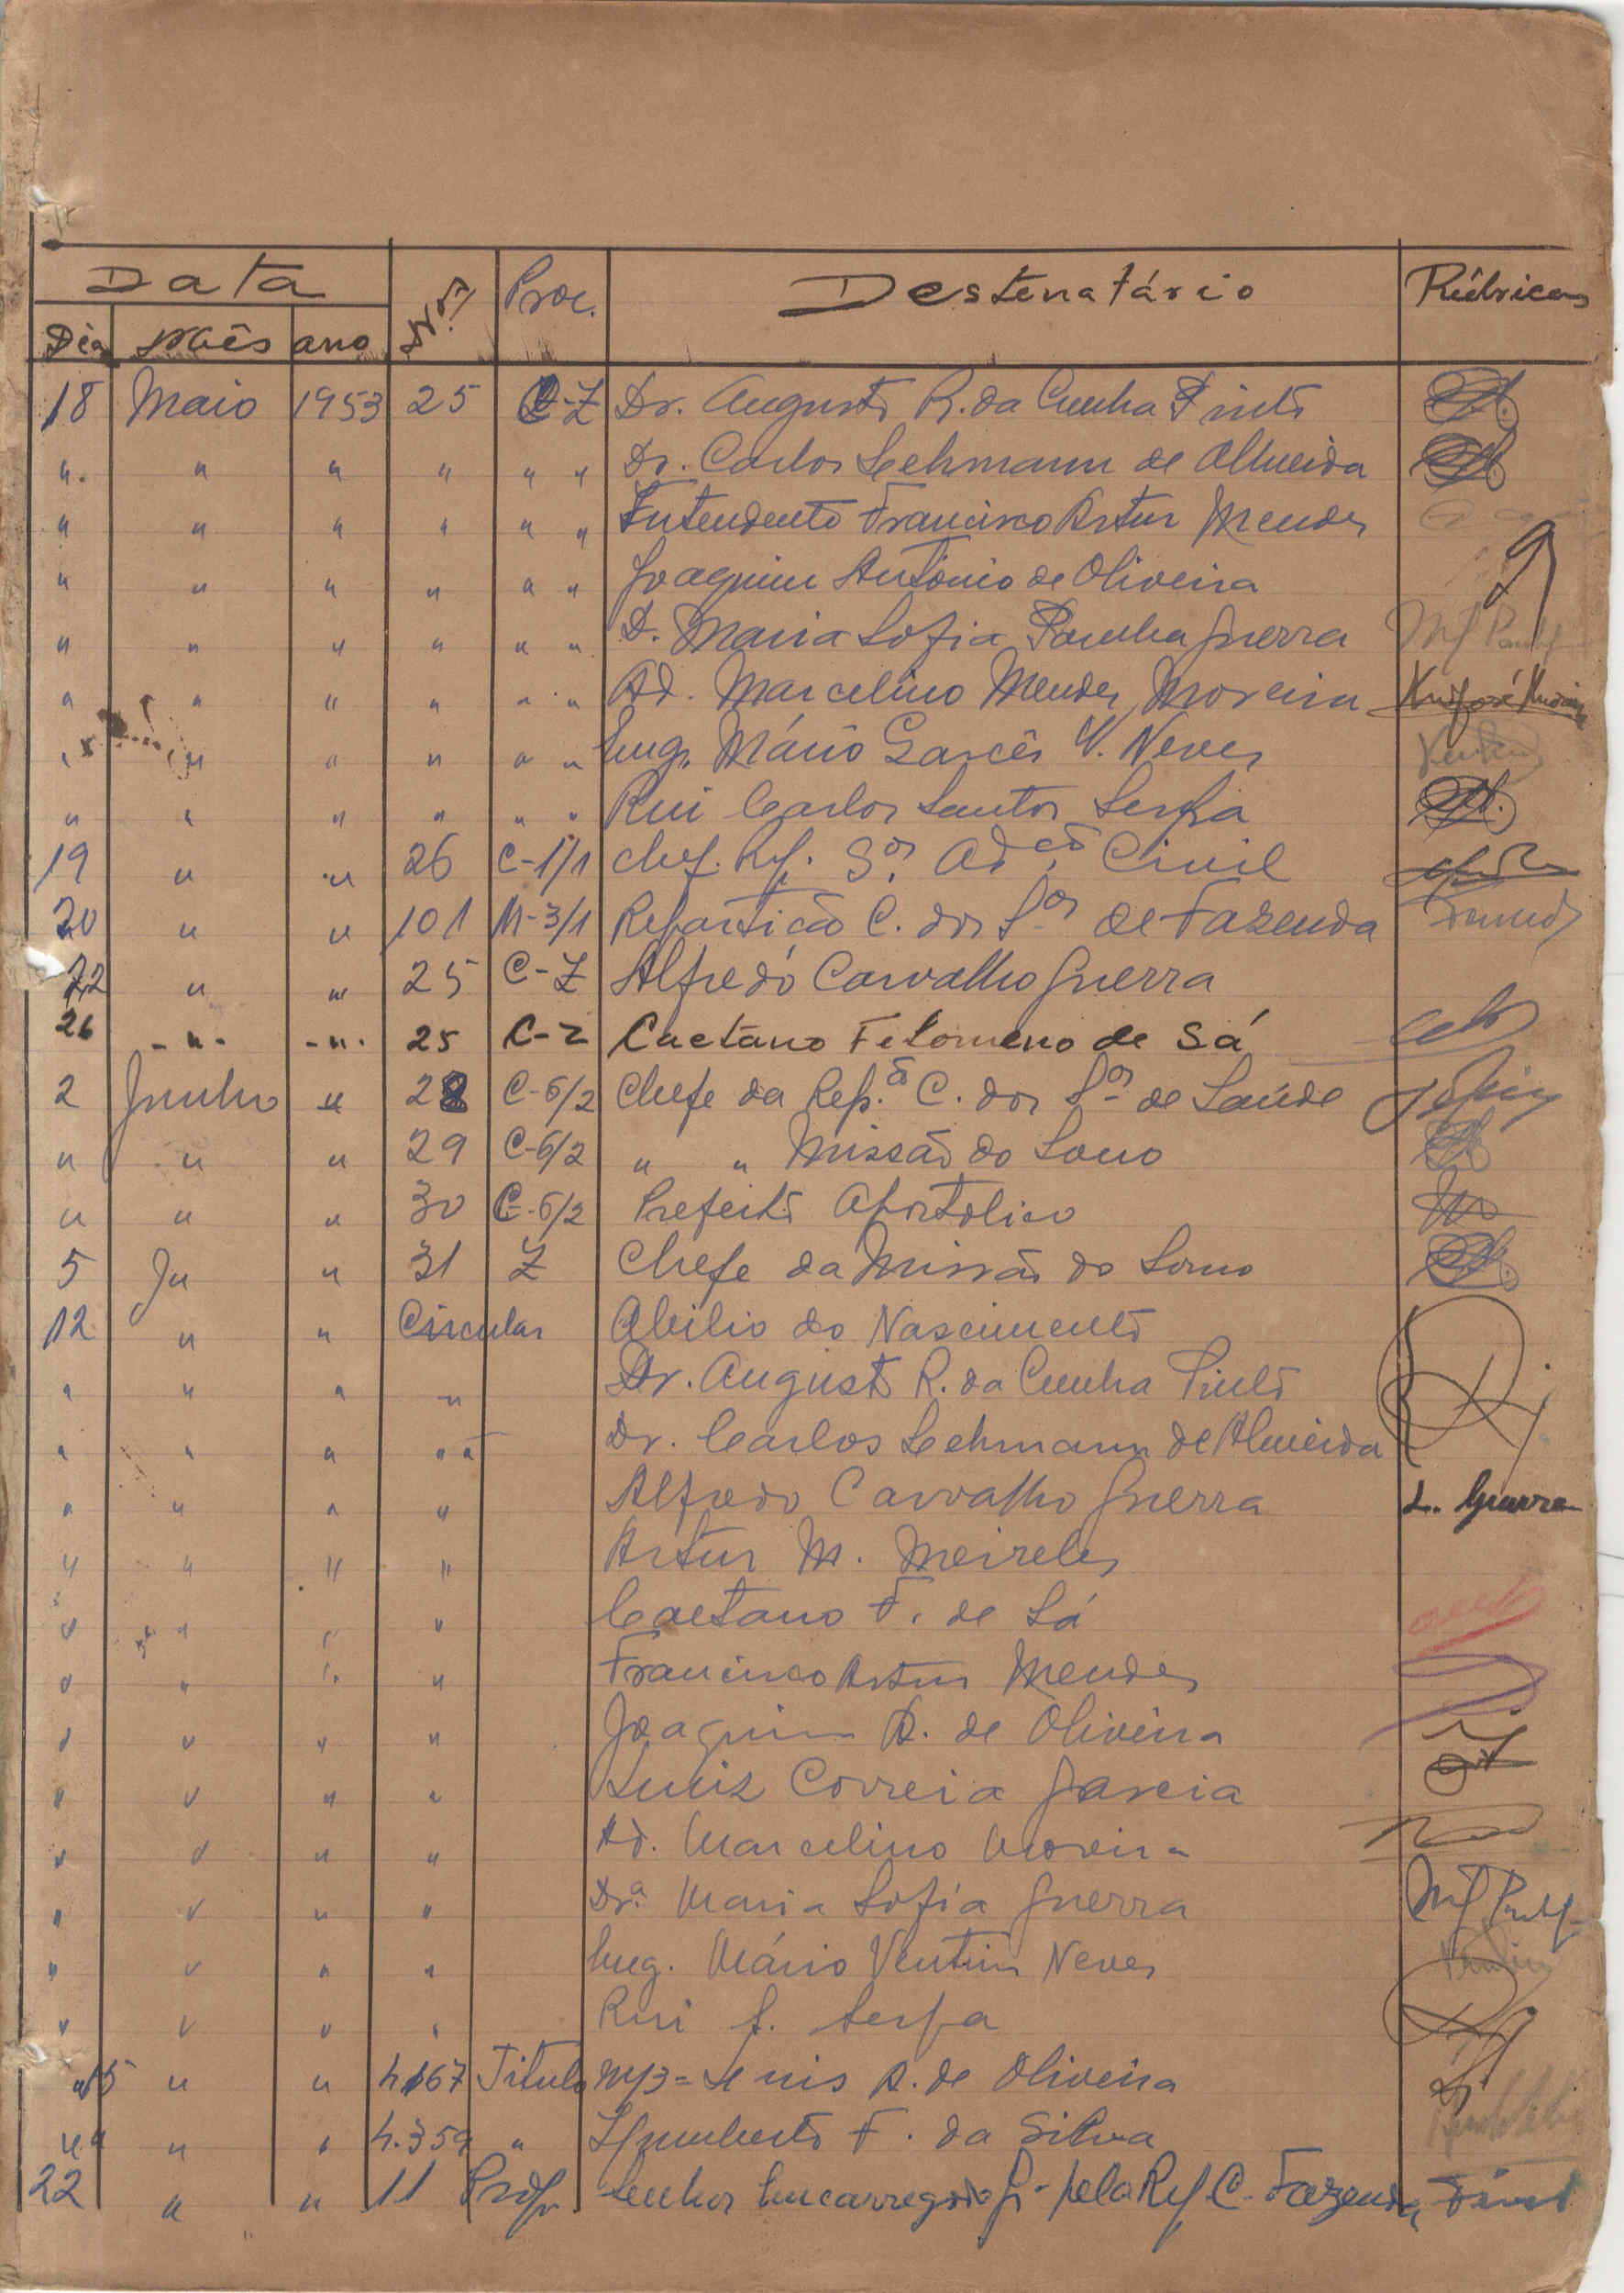 Data Nos Proc. Destenatário Rúbricas
Dia Mês ano
18 Maio 1953 25 C-Z Dr. Augusto R. da Cunha Pinto
" " " " " " Dr. Carlos Lehmann de Almeida
" " " " " " Intendente Francisco Artur Mendes
" " " " " " Joaquim António de Oliveira
" " " " " " D. Maria Sofia Guerra
" " " " " " Ad. Marcelino Mendes Moreira
" " " " " " Eng. Mário Garcês V. Neves
" " " " " " Rui Carlos Santos Serpa
19 " " 26 C-1/1 Chef. Rep. Sos Adção Civil
20 " " 101 M-3/1 Repartição C. dos Sos de Fazenda
22 " " 25 C-Z Alfredo Carvalho Guerra
26 -"- -"- 25 C-Z Caetano Filomeno de Sá
2 Junho " 28 C-6/2 Chefe da Rep.ão C. dos Sos de Saúde
" " " 29 C-6/2 " " Missão do Sono
" " " 30 C-6/2 Prefeito Apostolico
5 Ju " 31 Z Chefe da Missão do Sono
12 " " Circular Abilio do Nascimento
" " " " Dr. Augusto R. da Cunha Pinto
" " " " " Dr. Carlos Lehmann de Almeida
" " " " Alfredo Carvalho Guerra L. Guerra
" " " " Artur M. Meireles
" " " " Caetano F. de Sá
" " " " Francisco Artur Mendes
" " " " Joaquim A. de Oliveira
" " " " Luiz Correia Garcia
" " " " Ad. Marcelino Moreira
" " " " Dr.ª Maria Sofia Guerra
" " " " Eng. Mário Ventim Neves
" " " " Rui S. Serpa
15 " " 4.167 Titulo Luis A. de Oliveira
" " " 4.359 " Humberto F. da Silva
22 " " 11 Senhor Encarregado pela Rep C. Fazenda